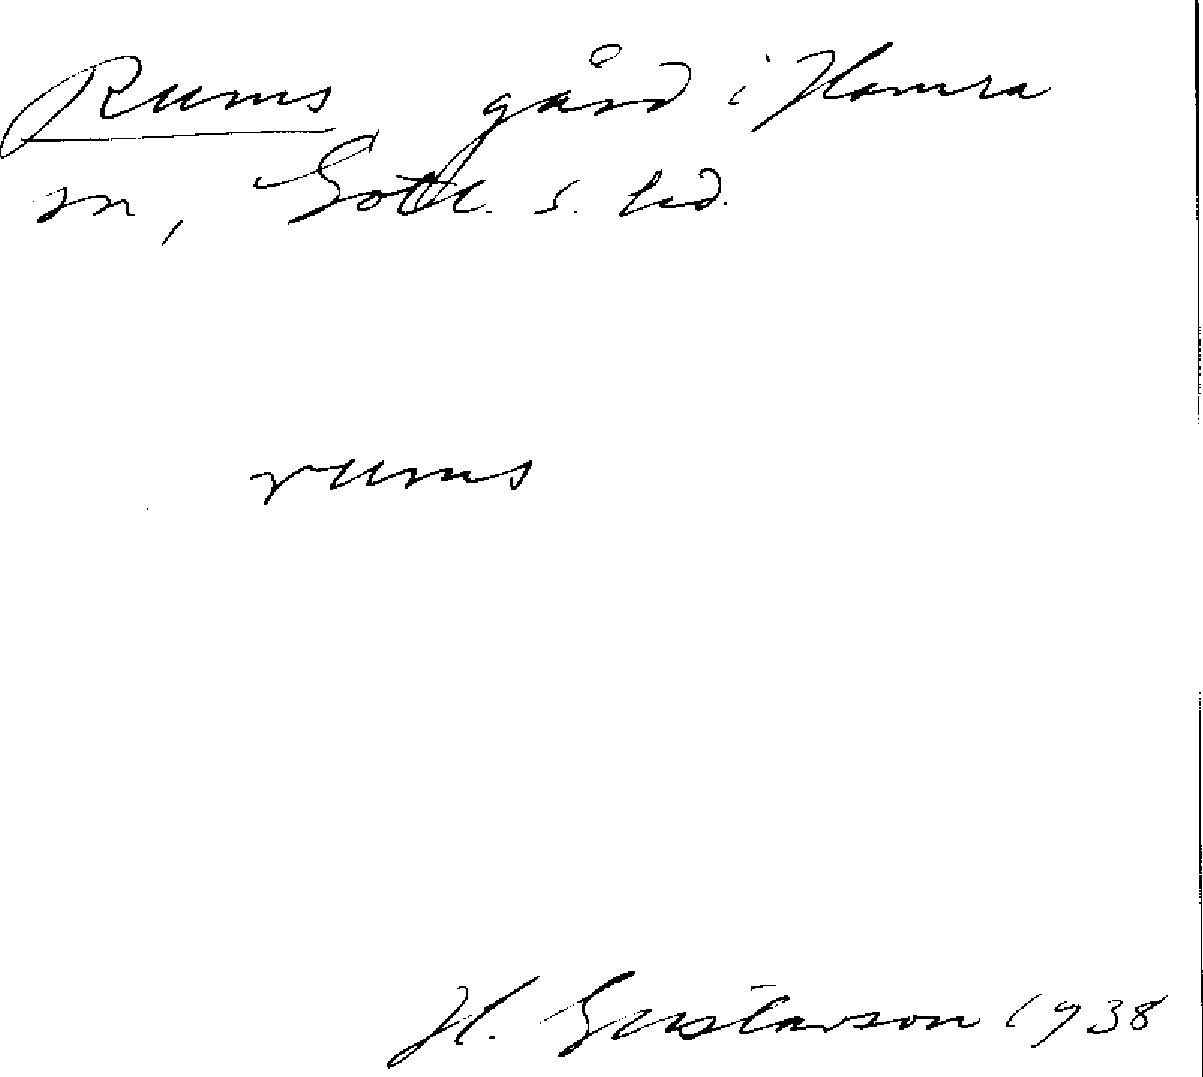 Rums gård i Hamra
sn, Gotl. s. hd.
rums
H. Gustavson 1938